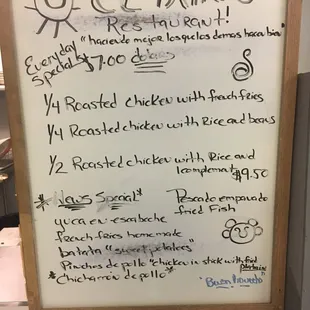 Restaurant!
"haciendo mejor lo que los demas hacen bien"
Everyday
Specials $7.00
1/4 Roasted chicken with french fries
1/4 Roasted chicken with Rice and beans
1/2 Roasted chicken with Rice and
1 complement $9.50
*News Special*
yuca en escabeche
french fries homemade
batata "sweet potatoes"
Pinchos de pollo "chicken in stick with fried
plantain
*Chicharron de pollo*
Pescado empanado
fried Fish
Buen Provecho